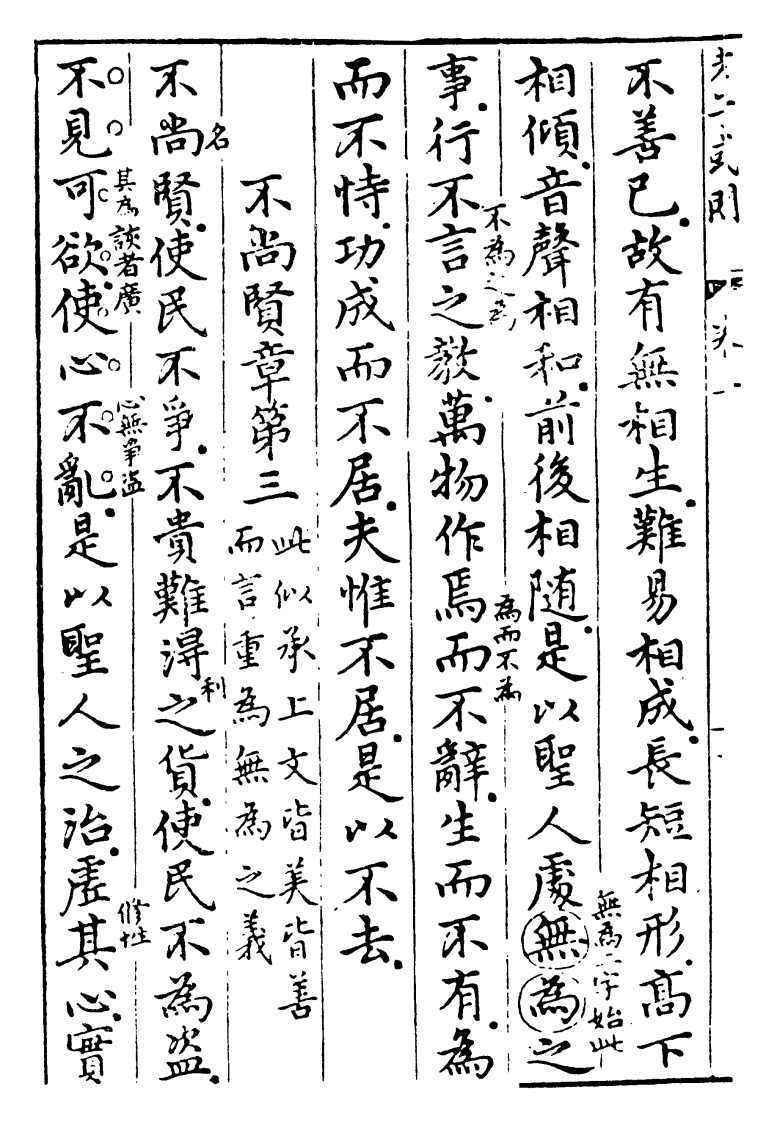 不善已故有無相生難易相成長短相形高下
相傾音聲相和前後相随是以聖人處無為之
無為二字始此
事行不言之教萬物作焉而不辭生而不有為
不為之為
為而不為
而不恃功成而不居夫惟不居是以不去
不尚賢章第三
此似承上文皆美皆善
而言重為無為之義
不尚賢使民不爭不貴難得之貨使民不為盜
名
利
不見可欲使心不亂是以聖人之治虛其心實
其為該者廣
心無爭盜
修性